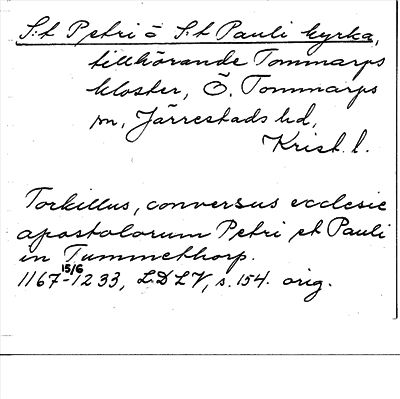 S:t Petri o S:t Pauli kyrka,
tillhörande Tommarps
kloster, Ö. Tommarps
sn, Järrestads hd,
Krist. l.
Torkillus, conversus ecclesie
apostolorum Petri et Pauli
in Tummethorp.
1167-15/6 1233, LDLV, s. 154. orig.